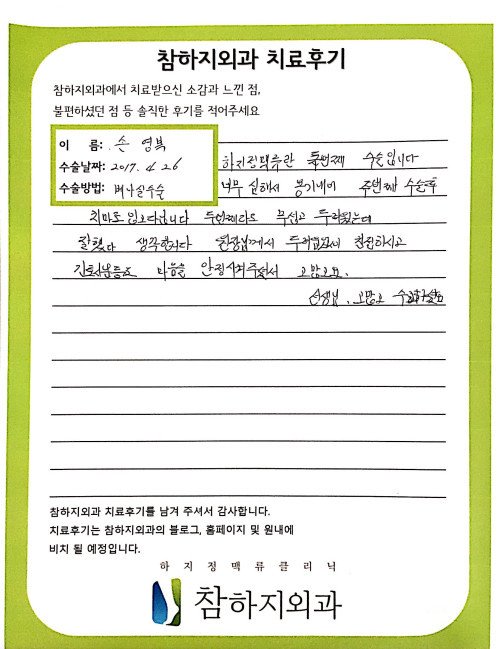 참하지외과 치료후기
참하지외과에서 치료받으신 소감과 느낀 점,
불편하셨던 점 등 솔직한 후기를 적어주세요
이 름: 손 영복
수술날짜: 2017. 4. 26
수술방법: 혀나실수술
하지정맥류란 두번째 수술입니다
너무 심해서 용기내어 수술후
치마도 입소다합니다 두번째라도 무섭고 두려웠는데
잘했다 생각합니다 원장님께서 친절하시고
마음을 안정시켜주셔서 고맙고요.
선생님, 고맙고
참하지외과 치료후기를 남겨 주셔서 감사합니다.
치료후기는 참하지외과의 블로그, 홈페이지 및 원내에
비치 될 예정입니다.
하지정맥류클리닉
참하지외과